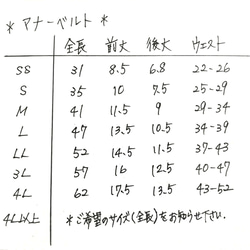 ＊マナーベルト＊
全長 前丈 後丈 ウエスト
SS 31 8.5 6.8 22-26
S 35 10 7.5 25-29
M 41 11.5 9 29-34
L 47 13.5 10.5 34-39
LL 52 14.5 11.5 37-43
3L 57 16 12.5 40-47
4L 62 17.5 13.5 43-52
4L以上 ＊ご希望のサイズ(全長)をお知らせ下さい。